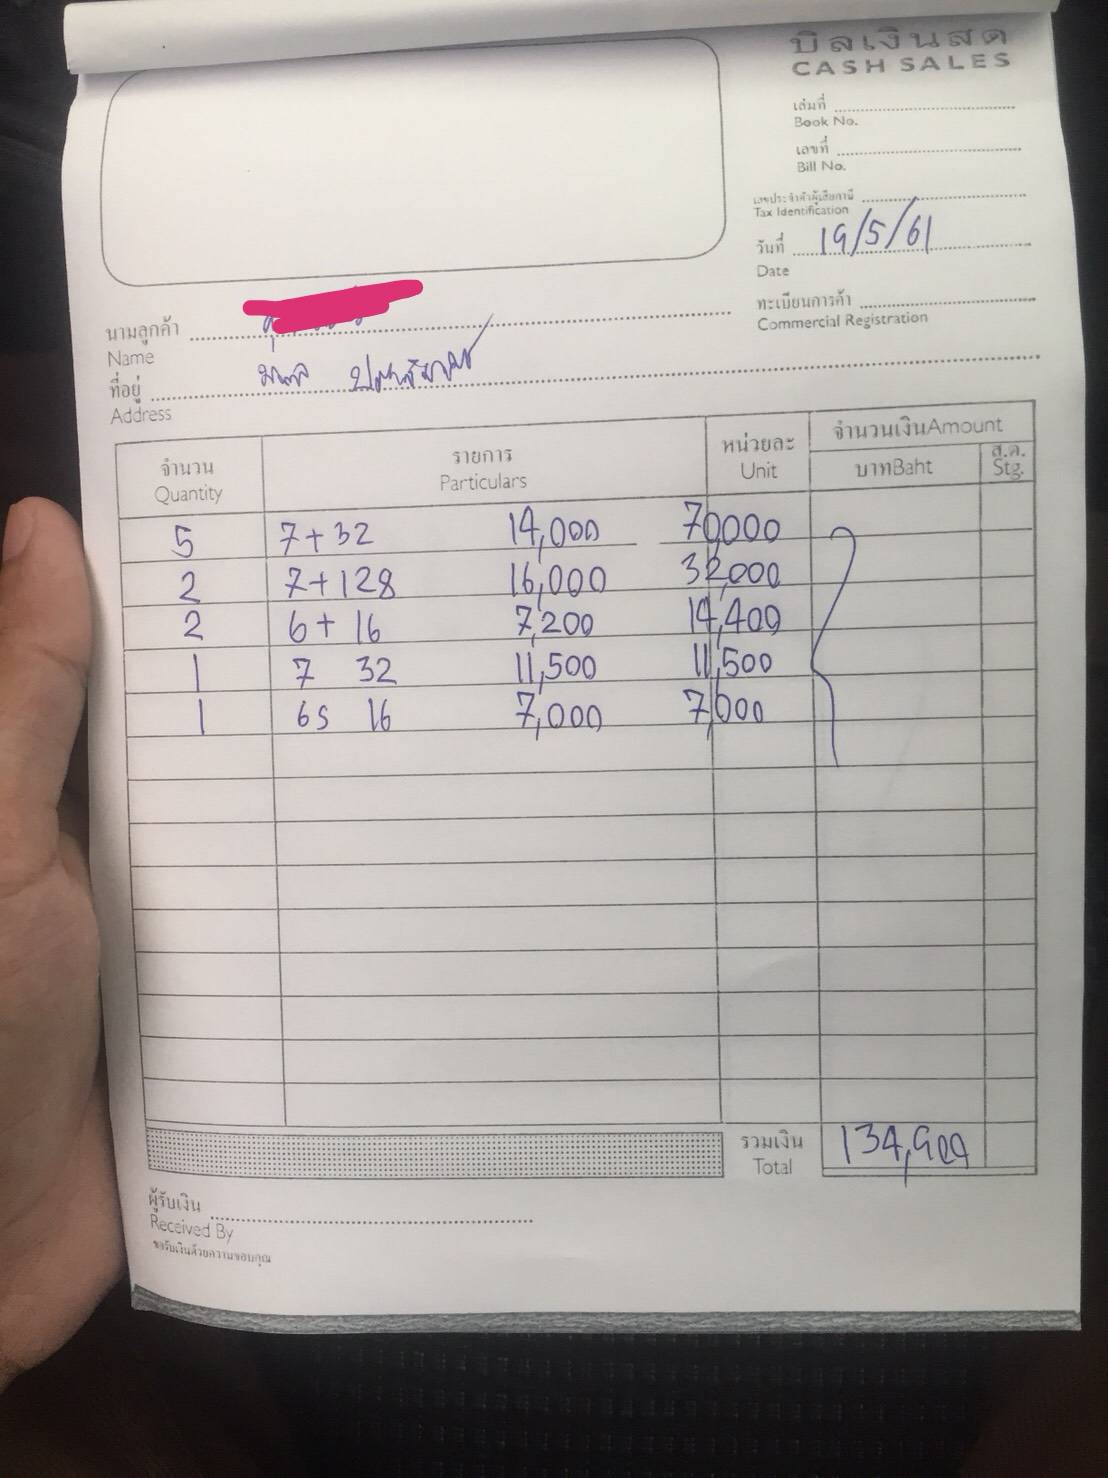 บิลเงินสด
CASH SALES
เล่มที่
Book No.
เลขที่
Bill No.
เลขประจำตัวผู้เสียภาษี
Tax Identification
วันที่ 19/5/61
Date
ทะเบียนการค้า
Commercial Registration
นามลูกค้า
Name
ที่อยู่
Address
จำนวน รายการ หน่วยละ จำนวนเงินAmount
Quantity Particulars Unit บาทBaht ส.ต. Stg.
5 7+32 14,000 70,000
2 7+128 16,000 32,000
2 6+16 7,200 14,400
1 7 32 11,500 11,500
1 6S 16 7,000 7,000
รวมเงิน 134,900
Total
ผู้รับเงิน
Received By
ขอรับเงินด้วยความขอบคุณ